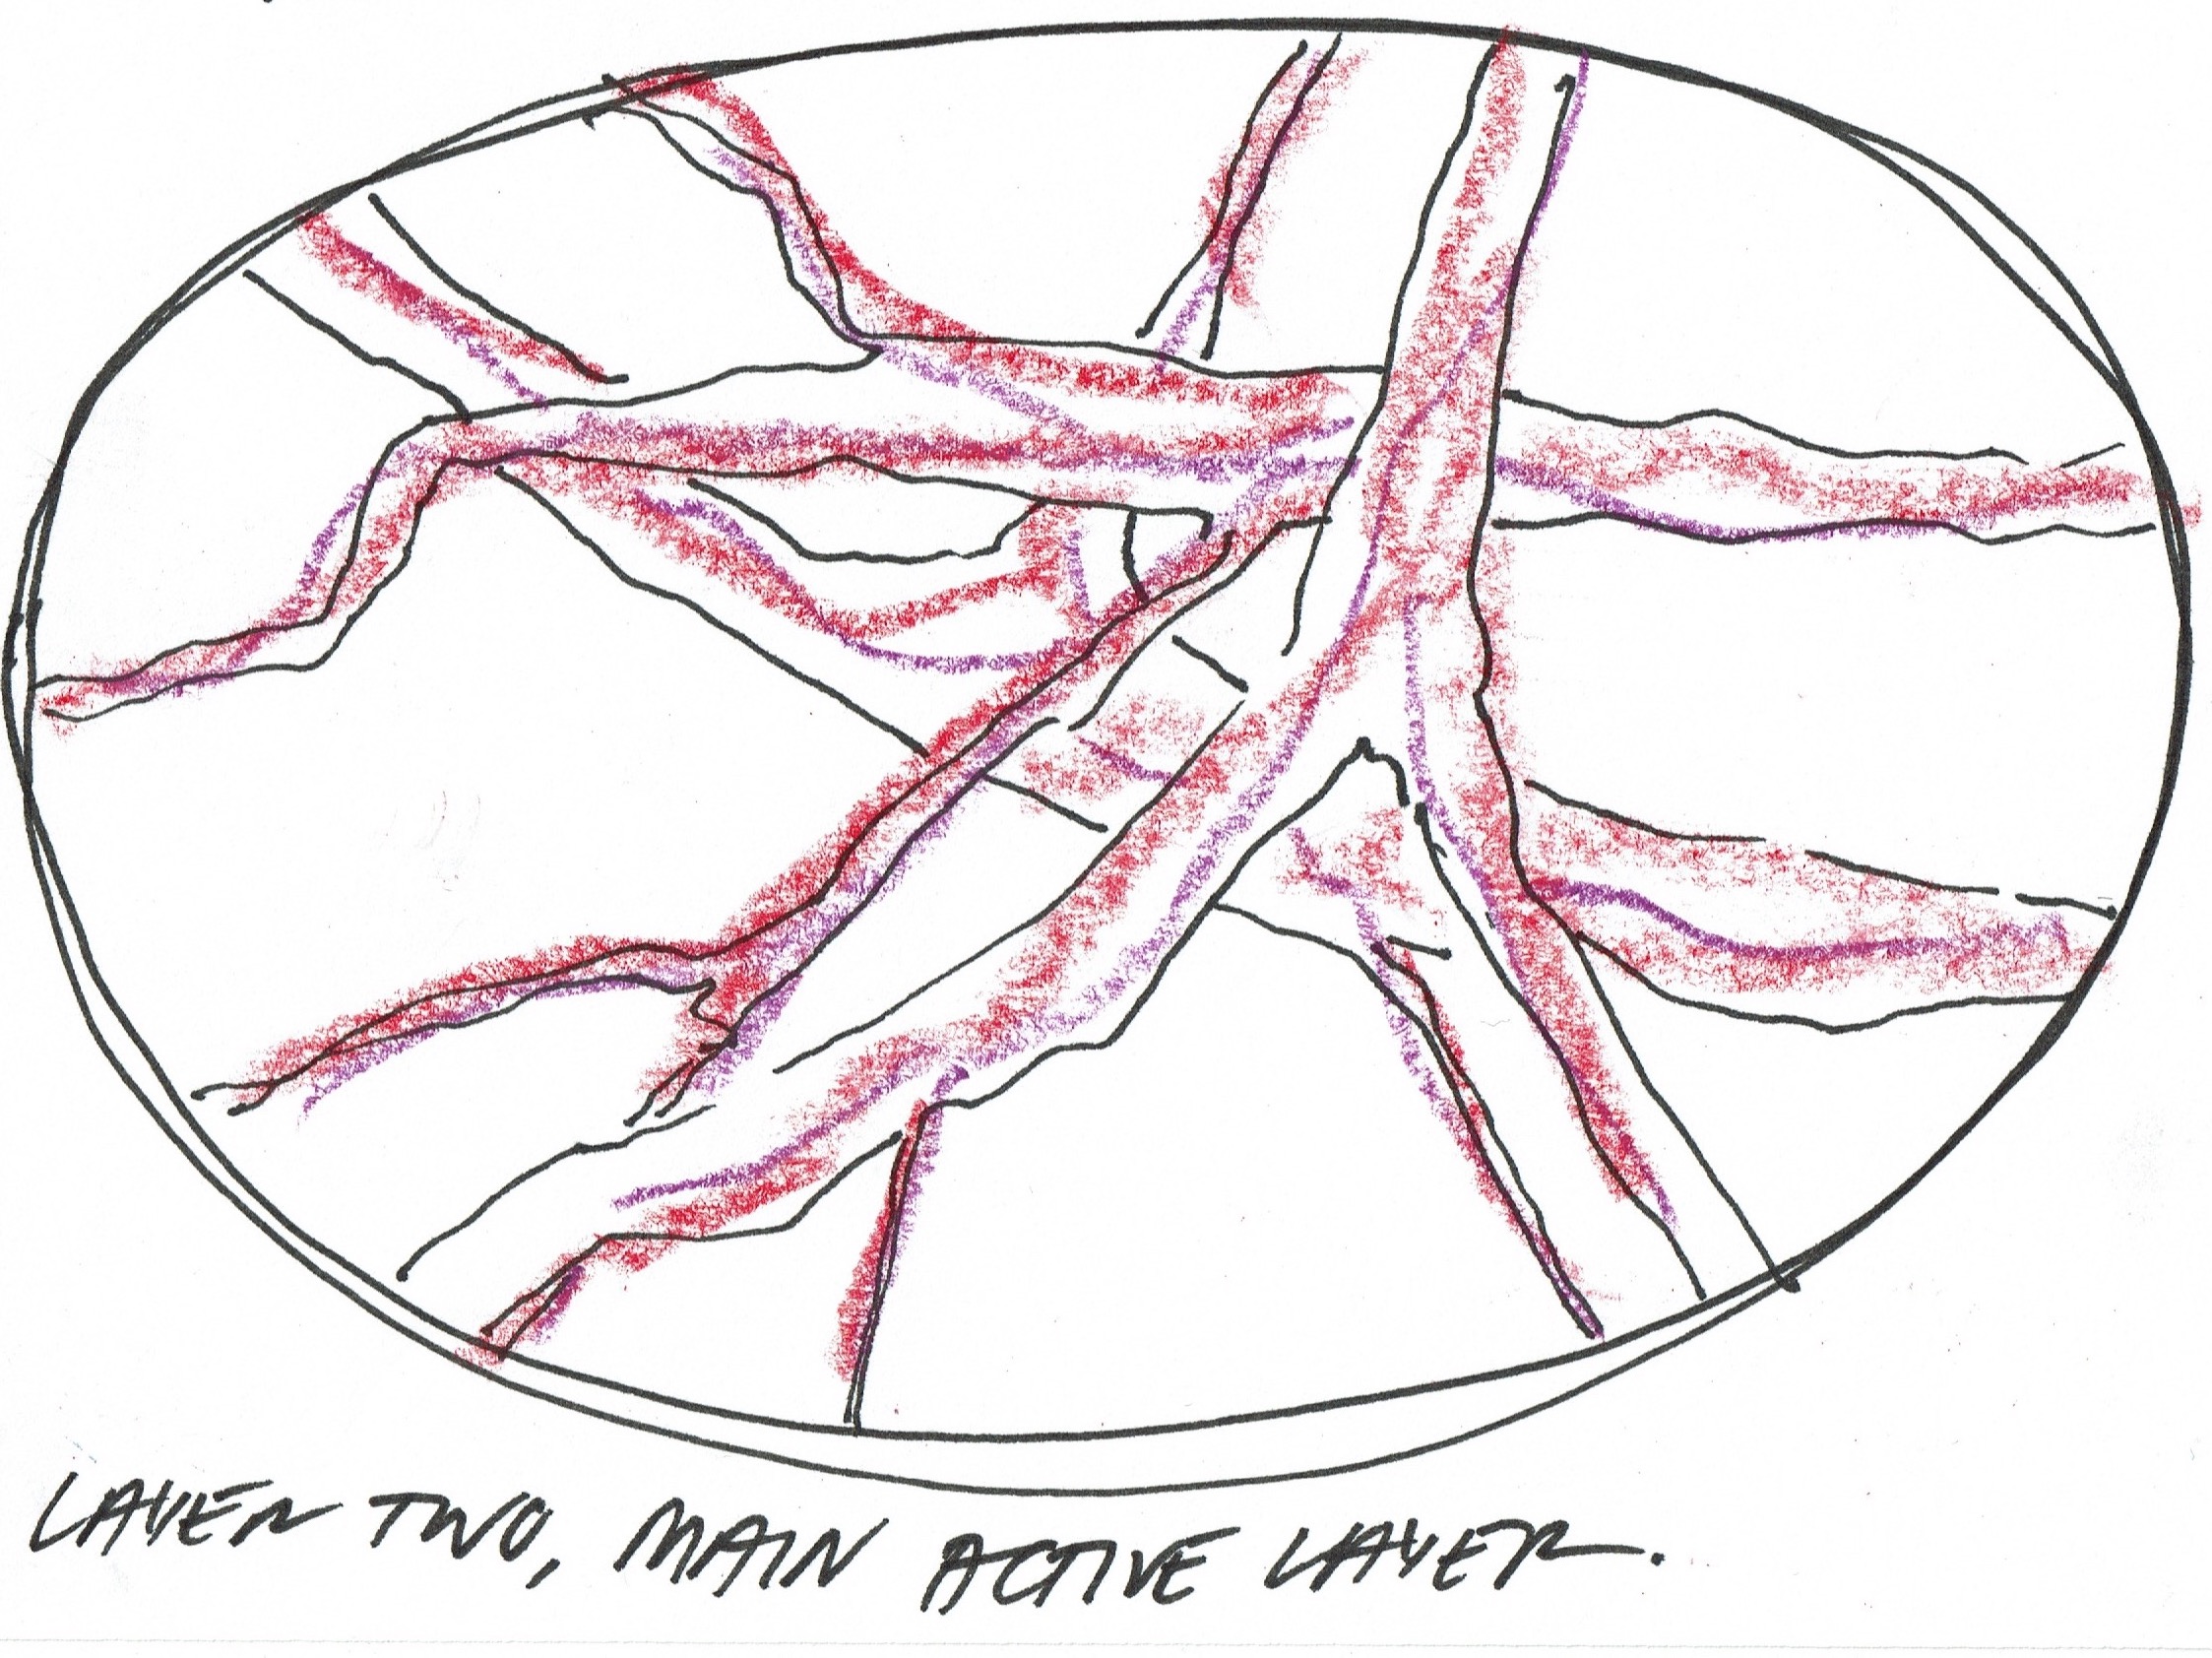 LAYER TWO, MAIN ACTIVE LAYER.